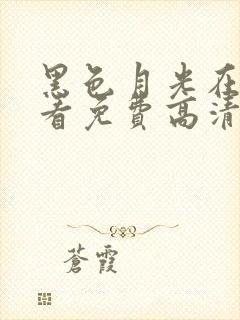 黑色月光在
看免费高清
蒼霞